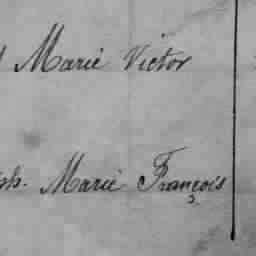 Marie Victor
ph. Marie François